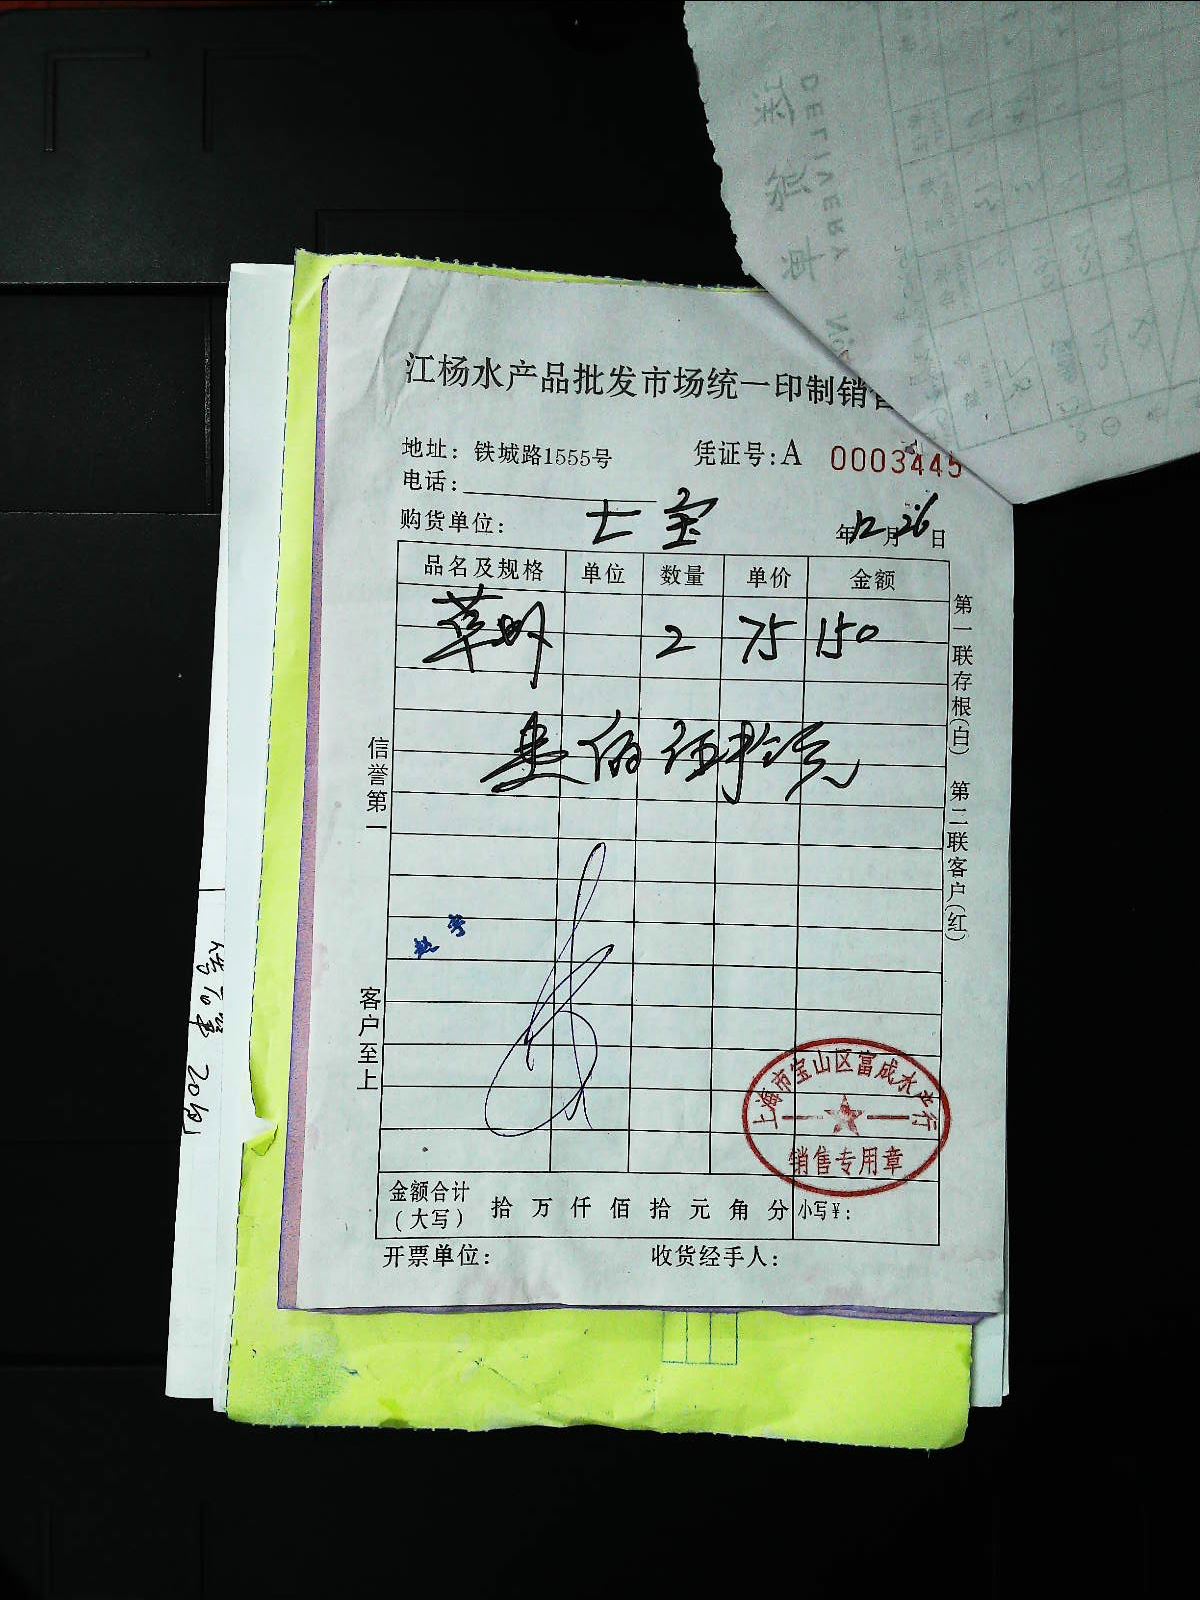 江杨水产品批发市场统一印制销售
地址：铁城路1555号
凭证号：A 0003445
电话：
购货单位：七宝
年12月26日
品名及规格 单位 数量 单价 金额
草虾 2 75 150
壹佰伍拾元
信誉第一
客户至上
第一联存根（白） 第二联客户（红）
上海市宝山区富成水产行
销售专用章
金额合计（大写） 拾 万 仟 佰 拾 元 角 分 小写￥：
开票单位： 收货经手人：
DELIVERY